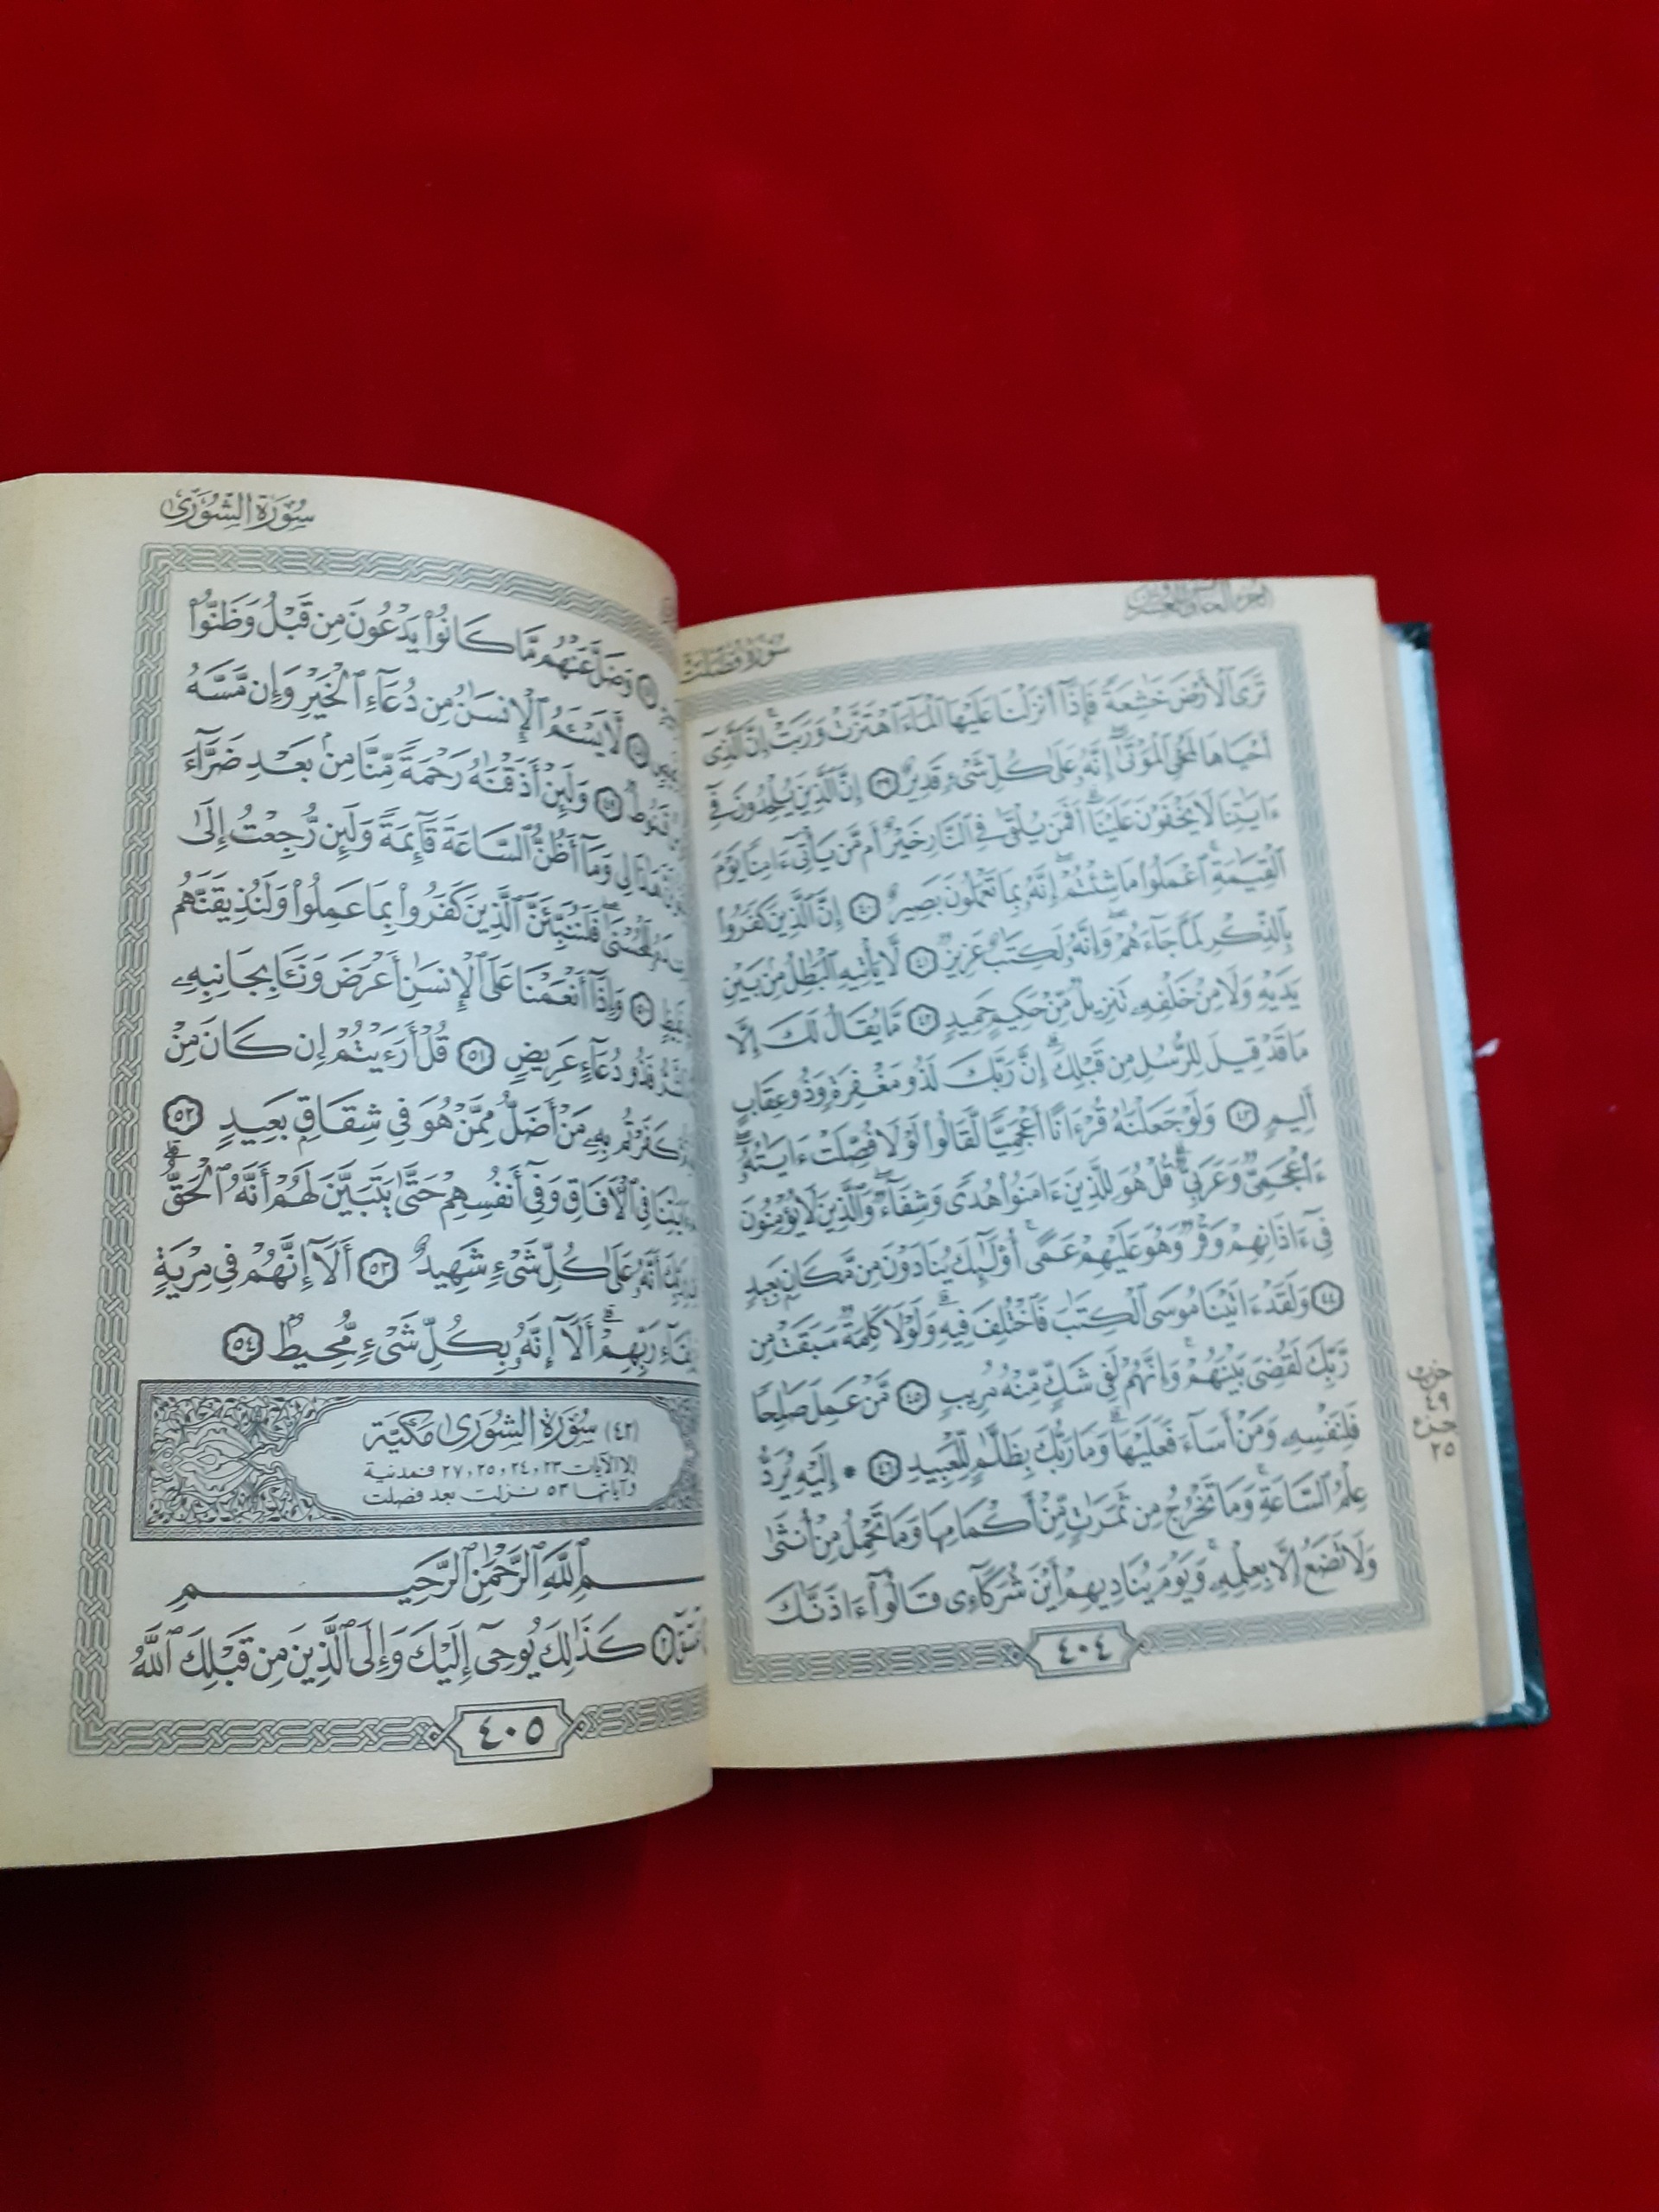 سورة فصلت
تَرَى ٱلْأَرْضَ خَٰشِعَةً فَإِذَآ أَنزَلْنَا عَلَيْهَا ٱلْمَآءَ ٱهْتَزَّتْ وَرَبَتْ ۚ إِنَّ ٱلَّذِىٓ
أَحْيَاهَا لَمُحْىِ ٱلْمَوْتَىٰٓ ۚ إِنَّهُۥ عَلَىٰ كُلِّ شَىْءٍ قَدِيرٌ ٣٩ إِنَّ ٱلَّذِينَ يُلْحِدُونَ فِىٓ
ءَايَٰتِنَا لَا يَخْفَوْنَ عَلَيْنَآ ۗ أَفَمَن يُلْقَىٰ فِى ٱلنَّارِ خَيْرٌ أَم مَّن يَأْتِىٓ ءَامِنًا يَوْمَ
ٱلْقِيَٰمَةِ ۚ ٱعْمَلُوا۟ مَا شِئْتُمْ ۖ إِنَّهُۥ بِمَا تَعْمَلُونَ بَصِيرٌ ٤٠ إِنَّ ٱلَّذِينَ كَفَرُوا۟
بِٱلذِّكْرِ لَمَّا جَآءَهُمْ ۖ وَإِنَّهُۥ لَكِتَٰبٌ عَزِيزٌ ٤١ لَّا يَأْتِيهِ ٱلْبَٰطِلُ مِنۢ بَيْنِ
يَدَيْهِ وَلَا مِنْ خَلْفِهِۦ ۖ تَنزِيلٌ مِّنْ حَكِيمٍ حَمِيدٍ ٤٢ مَّا يُقَالُ لَكَ إِلَّا
مَا قَدْ قِيلَ لِلرُّسُلِ مِن قَبْلِكَ ۚ إِنَّ رَبَّكَ لَذُو مَغْفِرَةٍ وَذُو عِقَابٍ
أَلِيمٍ ٤٣ وَلَوْ جَعَلْنَٰهُ قُرْءَانًا أَعْجَمِيًّا لَّقَالُوا۟ لَوْلَا فُصِّلَتْ ءَايَٰتُهُۥٓ ۖ
ءَا۬عْجَمِىٌّ وَعَرَبِىٌّ ۗ قُلْ هُوَ لِلَّذِينَ ءَامَنُوا۟ هُدًى وَشِفَآءٌ ۖ وَٱلَّذِينَ لَا يُؤْمِنُونَ
فِىٓ ءَاذَانِهِمْ وَقْرٌ وَهُوَ عَلَيْهِمْ عَمًى ۚ أُو۟لَٰٓئِكَ يُنَادَوْنَ مِن مَّكَانٍۭ بَعِيدٍ
٤٤ وَلَقَدْ ءَاتَيْنَا مُوسَى ٱلْكِتَٰبَ فَٱخْتُلِفَ فِيهِ ۗ وَلَوْلَا كَلِمَةٌ سَبَقَتْ مِن
رَّبِّكَ لَقُضِىَ بَيْنَهُمْ ۚ وَإِنَّهُمْ لَفِى شَكٍّ مِّنْهُ مُرِيبٍ ٤٥ مَّنْ عَمِلَ صَٰلِحًا
فَلِنَفْسِهِۦ ۖ وَمَنْ أَسَآءَ فَعَلَيْهَا ۗ وَمَا رَبُّكَ بِظَلَّٰمٍ لِّلْعَبِيدِ ٤٦ * إِلَيْهِ يُرَدُّ
عِلْمُ ٱلسَّاعَةِ ۚ وَمَا تَخْرُجُ مِن ثَمَرَٰتٍ مِّنْ أَكْمَامِهَا وَمَا تَحْمِلُ مِنْ أُنثَىٰ
وَلَا تَضَعُ إِلَّا بِعِلْمِهِۦ ۚ وَيَوْمَ يُنَادِيهِمْ أَيْنَ شُرَكَآءِى قَالُوٓا۟ ءَاذَنَّٰكَ
حزب
٤٩
جزء
٢٥
٤٠٤
سورة الشورى
وَضَلَّ عَنْهُم مَّا كَانُوا۟ يَدْعُونَ مِن قَبْلُ ۖ وَظَنُّوا۟
لَّا يَسْـَٔمُ ٱلْإِنسَٰنُ مِن دُعَآءِ ٱلْخَيْرِ وَإِن مَّسَّهُ
قَنُوطٌ ٤٩ وَلَئِنْ أَذَقْنَٰهُ رَحْمَةً مِّنَّا مِنۢ بَعْدِ ضَرَّآءَ
هَٰذَا لِى وَمَآ أَظُنُّ ٱلسَّاعَةَ قَآئِمَةً وَلَئِن رُّجِعْتُ إِلَىٰ
لَلْحُسْنَىٰ ۚ فَلَنُنَبِّئَنَّ ٱلَّذِينَ كَفَرُوا۟ بِمَا عَمِلُوا۟ وَلَنُذِيقَنَّهُم
٥٠ وَإِذَآ أَنْعَمْنَا عَلَى ٱلْإِنسَٰنِ أَعْرَضَ وَنَـَٔا بِجَانِبِهِۦ
فَذُو دُعَآءٍ عَرِيضٍ ٥١ قُلْ أَرَءَيْتُمْ إِن كَانَ مِنْ
كَفَرْتُم بِهِۦ مَنْ أَضَلُّ مِمَّنْ هُوَ فِى شِقَاقٍۭ بَعِيدٍ ٥٢
فِى ٱلْءَافَاقِ وَفِىٓ أَنفُسِهِمْ حَتَّىٰ يَتَبَيَّنَ لَهُمْ أَنَّهُ ٱلْحَقُّ ۗ
أَنَّهُۥ عَلَىٰ كُلِّ شَىْءٍ شَهِيدٌ ٥٣ أَلَآ إِنَّهُمْ فِى مِرْيَةٍ
رَبِّهِمْ ۗ أَلَآ إِنَّهُۥ بِكُلِّ شَىْءٍ مُّحِيطٌۢ ٥٤
(٤٢) سورة الشورى مكية
إلا الآيات ٢٣، ٢٤، ٢٥، ٢٧ فمدنية
وآياتها ٥٣ نزلت بعد فصلت
بِسْمِ ٱللَّهِ ٱلرَّحْمَٰنِ ٱلرَّحِيمِ
٢ كَذَٰلِكَ يُوحِىٓ إِلَيْكَ وَإِلَى ٱلَّذِينَ مِن قَبْلِكَ ٱللَّهُ
٤٠٥